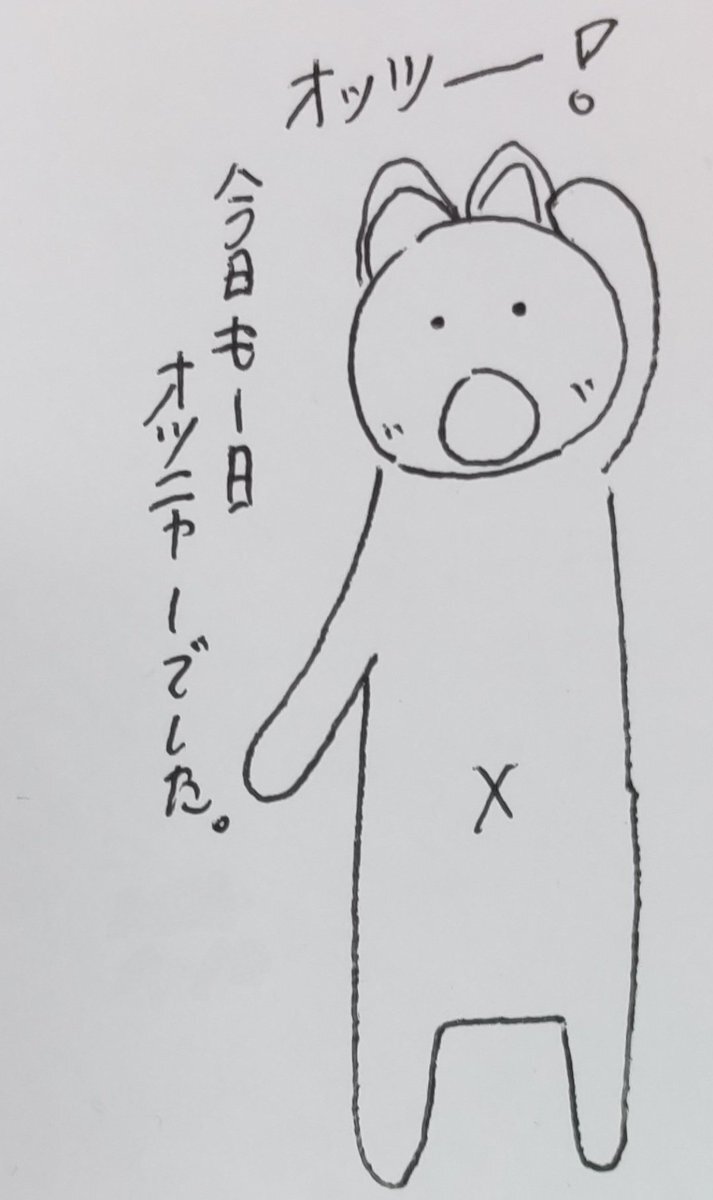 オッツー!
今日も1日
オツニャーでした。